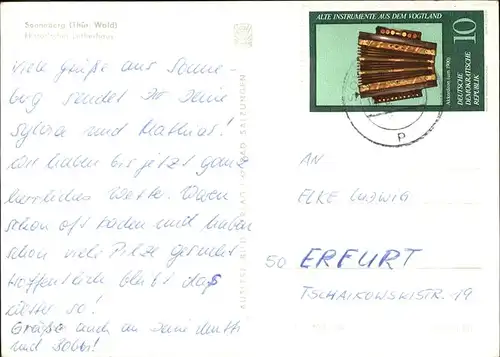 Sonneberg (Thür. Wald)
Viele Grüße aus Sonne-
berg sendet Dir Deine
Sylvia und Mathias!
Wir haben bis jetzt ganz
herrliches Wetter. Waren
schon oft baden und haben
schon viele Pilze gesucht
Hoffentlich bleibt das
Wetter so!
Grüße auch an Deine Mutti
und
ALTE INSTRUMENTE AUS DEM VOGTLAND
10
DEUTSCHE
DEMOKRATISCHE
REPUBLIK
P
AN
ELKE LUDWIG
50 ERFURT
TSCHAIKOWSKISTR. 19